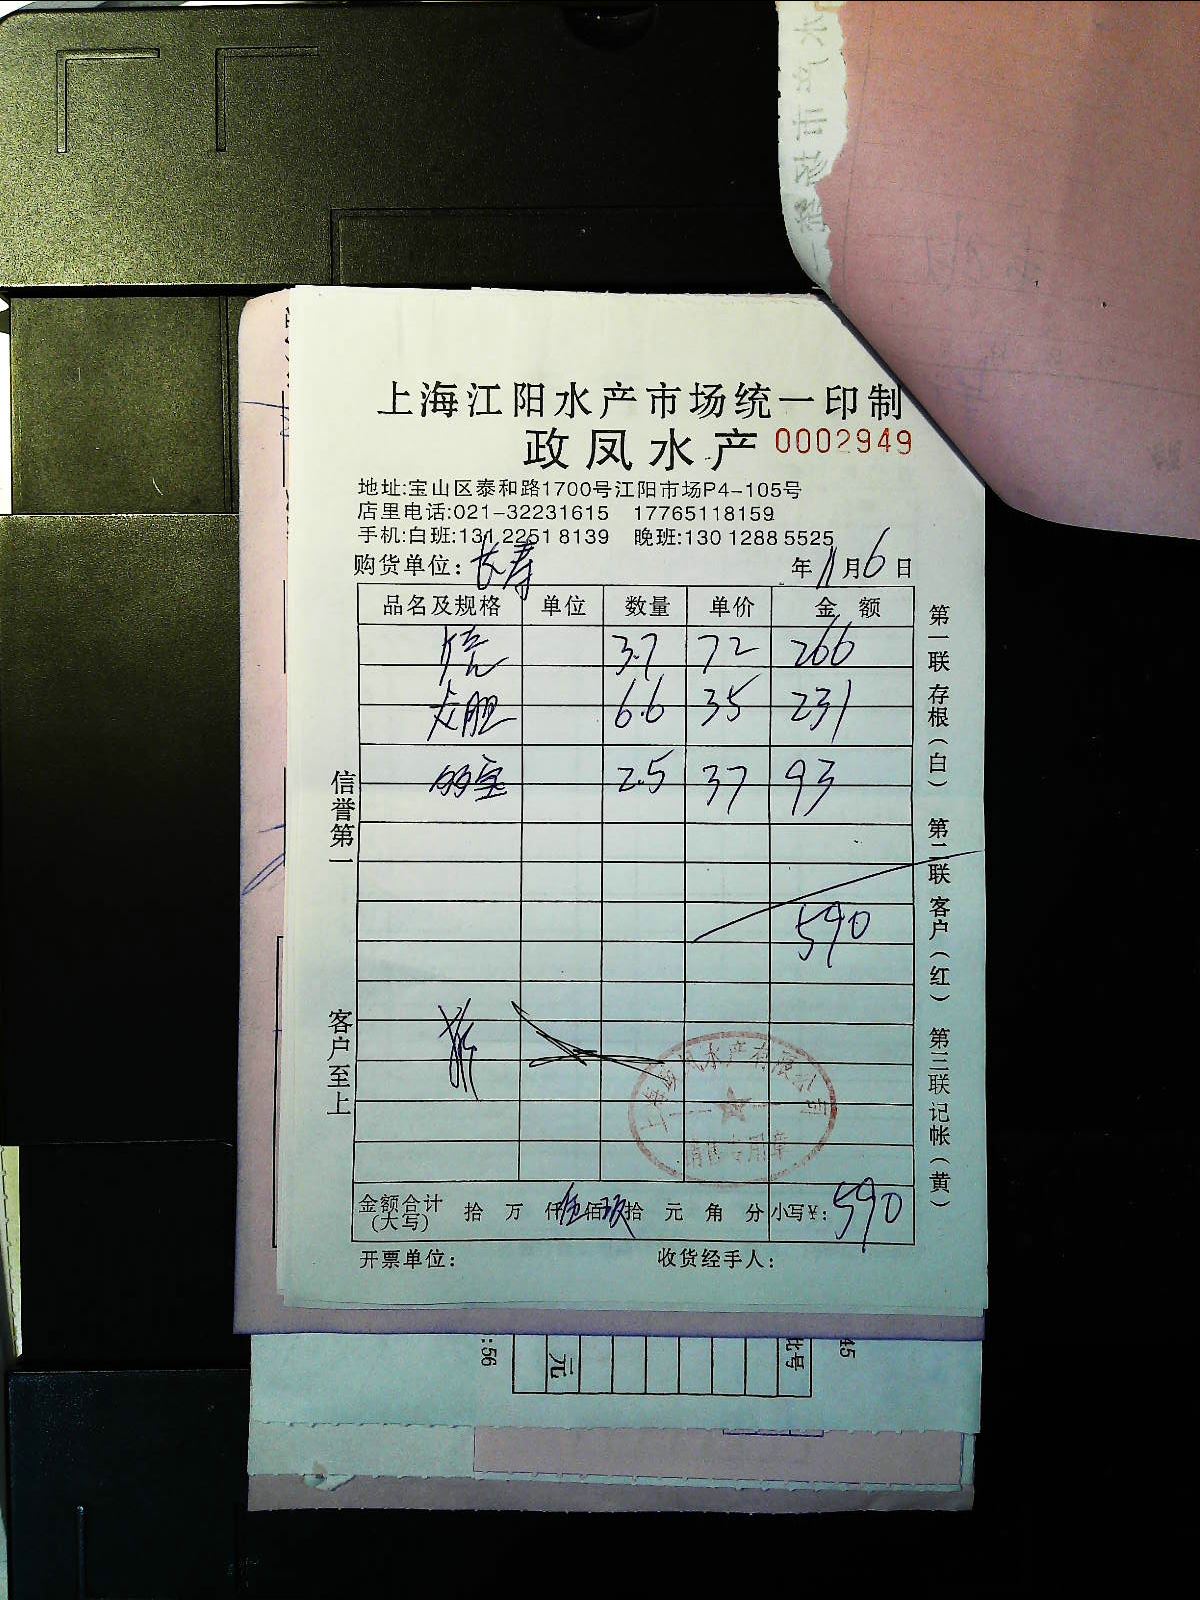 上海江阳水产市场统一印制
政凤水产 0002949
地址:宝山区泰和路1700号江阳市场P4-105号
店里电话:021-32231615 17765118159
手机:白班:131 2251 8139 晚班:130 1288 5525
购货单位: 长寿 年 11 月 6 日
品名及规格 单位 数量 单价 金 额
3.7 72 266
龙胆 6.6 35 231
多宝 2.5 37 93
590
信誉第一
客户至上
第一联 存根(白) 第二联 客户(红) 第三联 记帐(黄)
上海政凤水产有限公司
销售专用章
金额合计(大写) 拾 万 仟 伍 佰 玖 拾 元 角 分 小写¥: 590
开票单位: 收货经手人:
:56
元
批号
45